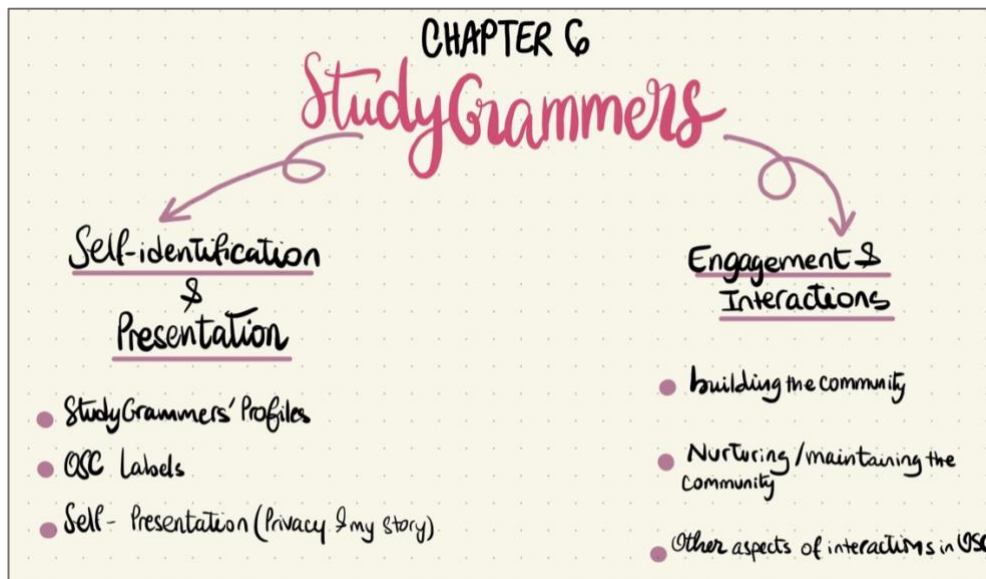 CHAPTER 6
StudyGrammers
Self-identification
&
Presentation
StudyGrammers' Profiles
OSC Labels
Self- Presentation (Privacy & my Story)
Engagement &
Interactions
building the community
Nurturing/maintaining the
community
Other aspects of interactions in OSC